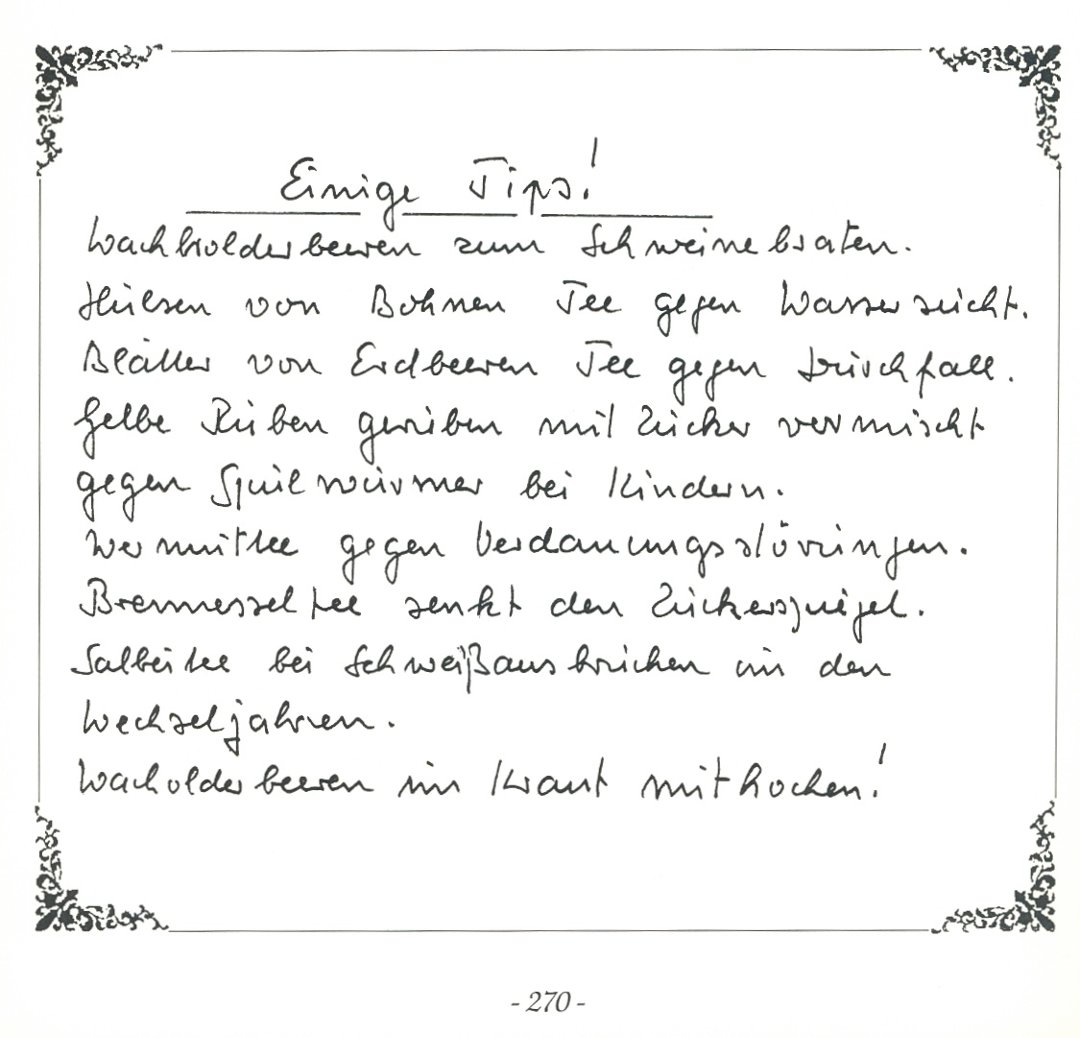 Einige Tips!
Wachholderbeeren zum Schweinebraten.
Hülsen von Bohnen Tee gegen Wassersucht.
Blätter von Erdbeeren Tee gegen Durchfall.
Gelbe Rüben gerieben mit Zucker vermischt
gegen Spulwürmer bei Kindern.
Wermuttee gegen Verdauungsstörungen.
Brennesseltee senkt den Zuckerspiegel.
Salbeitee bei Schweißausbrüchen in den
Wechseljahren.
Wacholderbeeren im Kraut mitkochen!
- 270 -